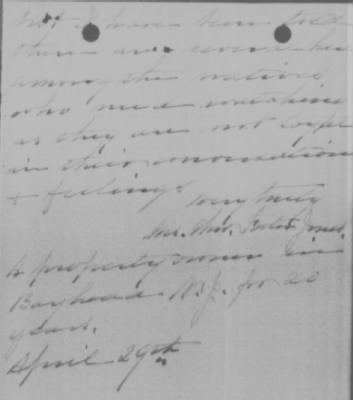 but I have been told
there are several here
among the natives
who need watching
as they are not loyal
in their conversation
& feelings
very truly
Mrs. Thos. Jones.
A property owner in
Bayhead N.J. for 20
years.
April 29th